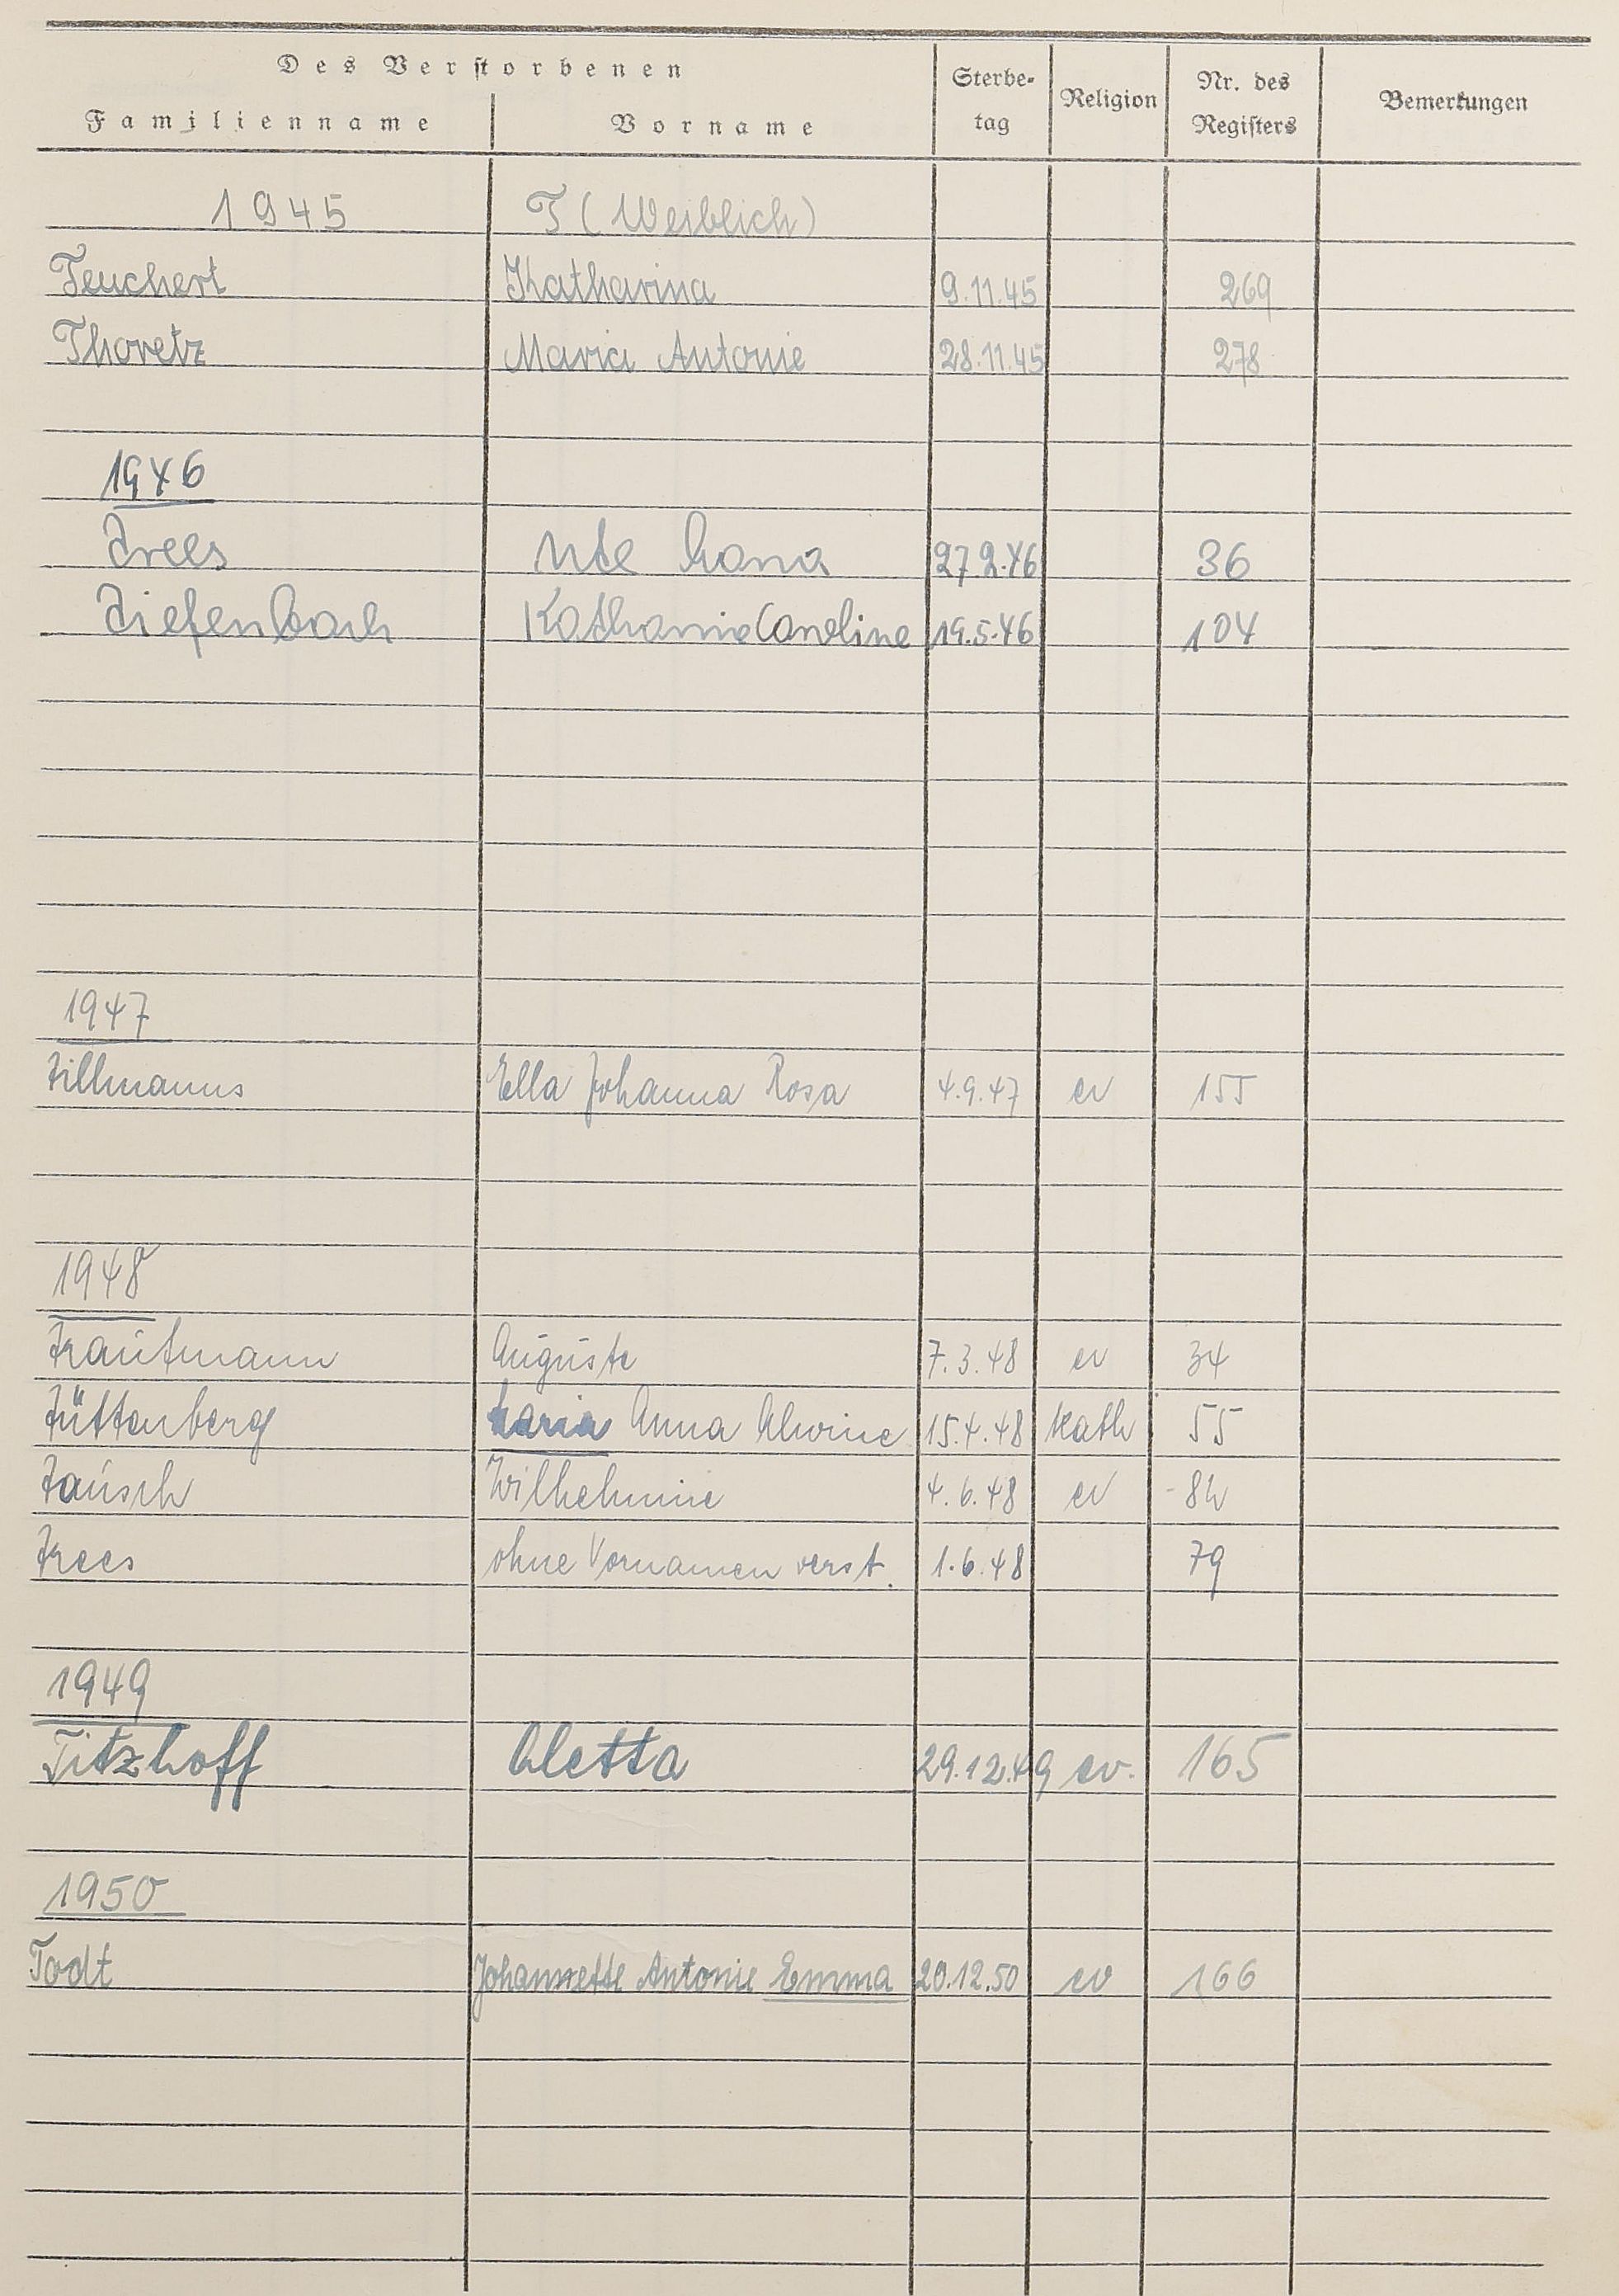 Des Verstorbenen Sterbe- Religion Nr. des Bemerkungen
Familienname Vorname tag Registers
1945 T (Weiblich)
Teuchert Katharina 9.11.45 269
Thoretz Maria Antonie 28.11.45 278
1946
Trees Ute 27.2.46 36
Tiefenbach Katharine Caroline 19.5.46 104
1947
Tillmanns Ella Johanna Rosa 4.9.47 ev 155
1948
Trautmann Auguste 7.3.48 ev 34
Tüttenberg Maria Anna Alwine 15.4.48 Kath 55
Tausch Wilhelmine 4.6.48 ev 84
Trees ohne Vornamen verst. 1.6.48 79
1949
Titzhoff Aletta 29.12.49 ev. 165
1950
Todt Johannette Antonie Emma 20.12.50 ev 166